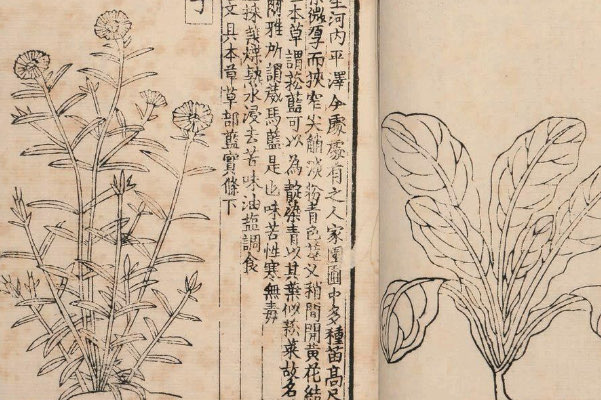 生河內平澤今處處有之人家園圃中多種苗高尺
微厚而狹窄尖䚡淡粉青色莖叉稍間開黃花結
本草謂菘藍可以為靛染青以其葉似菘菜故名
爾雅所謂葴馬藍是也味苦性寒無毒
採葉煠熟水浸去苦味油鹽調食
文具本草草部藍實條下